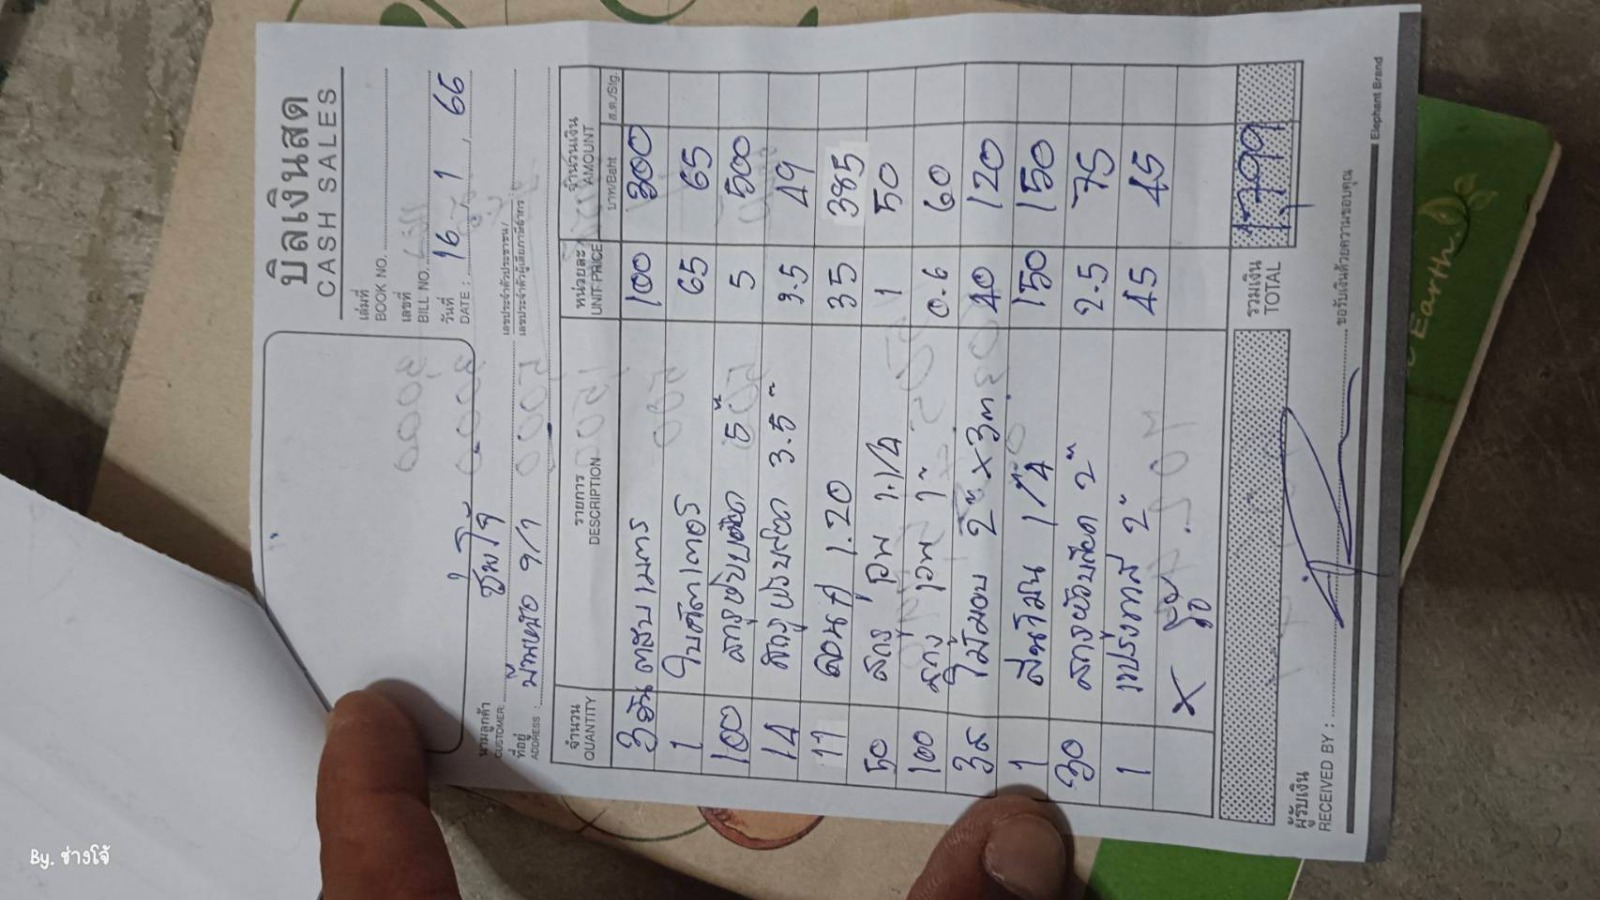 บิลเงินสด
CASH SALES
เล่มที่
BOOK NO.
เลขที่
BILL NO.
วันที่
DATE : 16, 1, 66
นามลูกค้า
CUSTOMER: ช่างโจ้
ที่อยู่
ADDRESS : 9/1
เลขประจำตัวประชาชน/
เลขประจำตัวผู้เสียภาษีอากร
จำนวน รายการ หน่วยละ จำนวนเงิน
QUANTITY DESCRIPTION UNIT PRICE AMOUNT
บาท/Baht ส.ต./Stg.
3 อัน ตลับเมตร 100 300
1 ใบตัด 65 65
100 สกรู 5" 5 500
14 สกรู 3.5" 3.5 49
11 ลอน 1.20 35 385
50 สกรู 1.1/4 1 50
100 สกรู 1" 0.6 60
3 ไม้มอบ 2" x 3ม. 40 120
1 1/4 150 150
30 สกรู 2" 2.5 75
1 แปรงทาสี 2" 45 45
X
รวมเงิน 1,799
TOTAL
ผู้รับเงิน
RECEIVED BY :
ขอรับเงินด้วยความขอบคุณ
Elephant Brand
Earth
By. ช่างโจ้